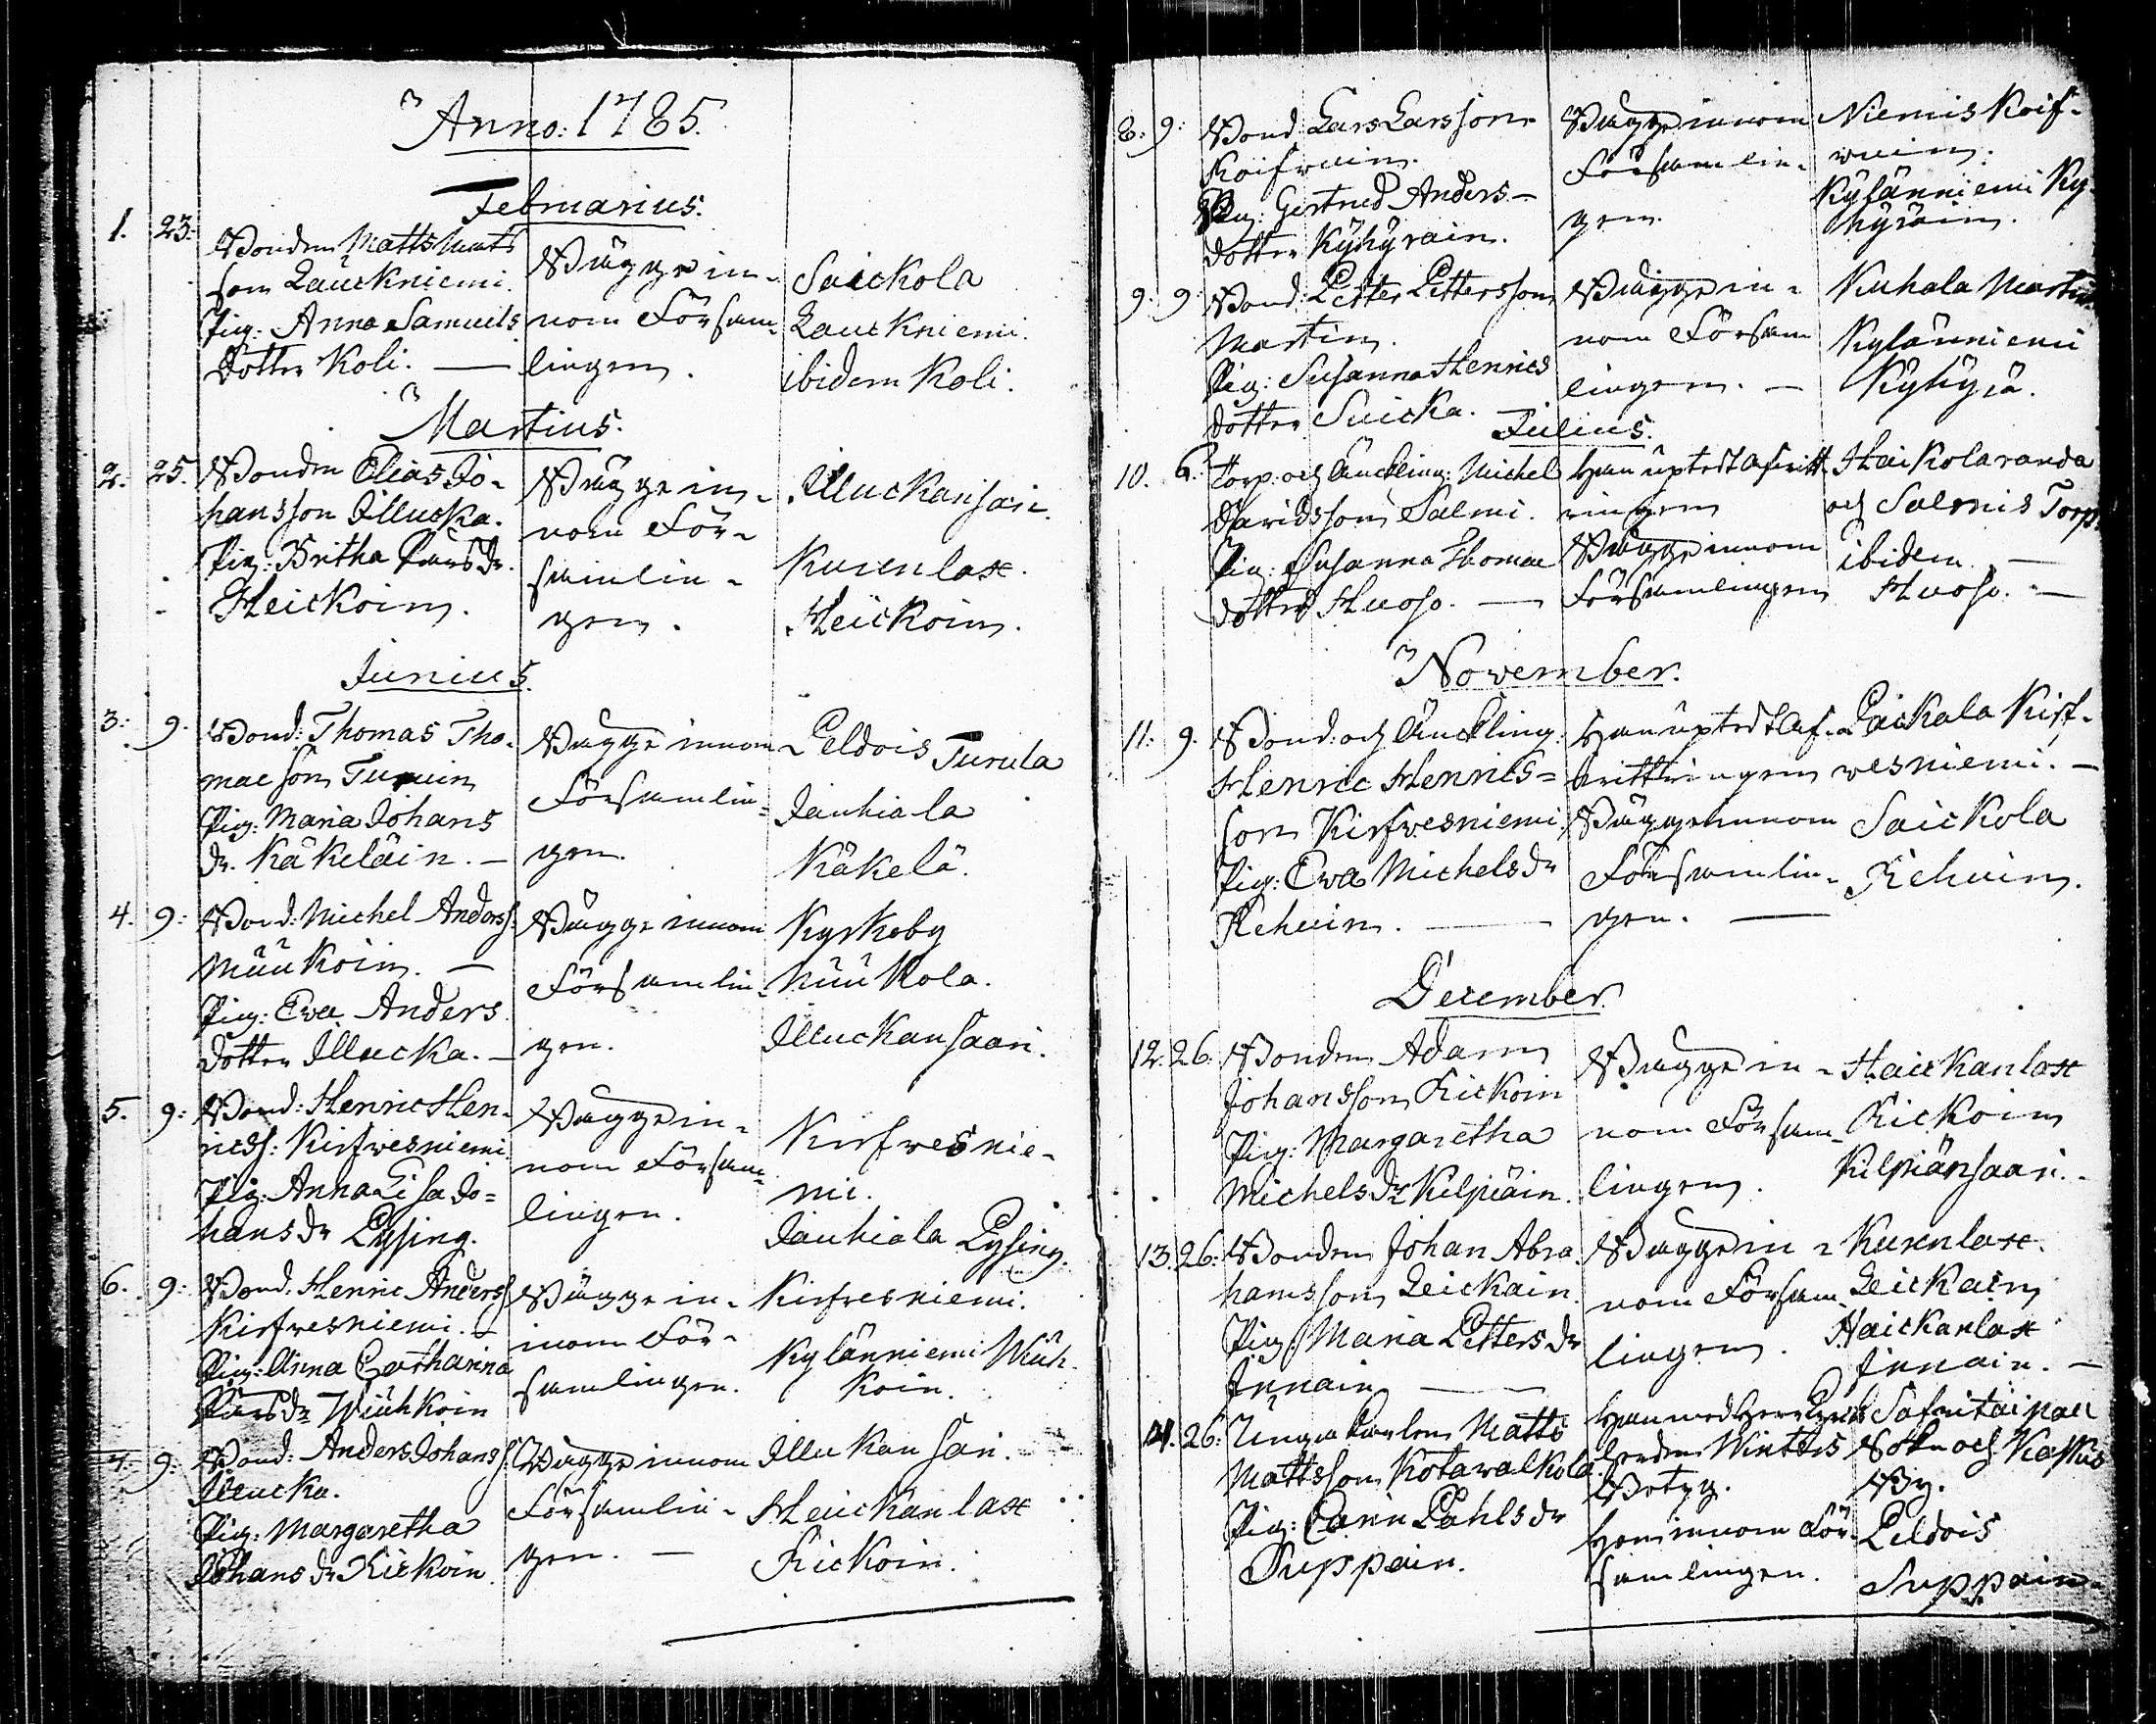 Anno: 1785.
Februarius.
1. 23. Bonden Matts Mats
son Lauckniemi.
Pig: Anna Samuels
dotter Koli. —
Bägge in-
nom Försam
lingen.
Saickola
Lauckniemi.
ibidem Koli.
Martius.
2. 25. Bonden Elias Jo-
hansson Illucka.
Pig: Britha Larsdr.
Heickoin.
Bägge in-
nom För-
samlin-
gen.
Illuckansari.
Kurenlax.
Heickoin.
Junius.
3. 9. Bond: Thomas Tho-
mæson Turuin
Pig: Maria Johans
dr. Käkeläin. —
Bägge innom
Församlin-
gen.
Peldois Turula
Jauhiala
Käkelä.
4. 9: Bond: Michel Anderss:
Müükoin. —
Pig: Eva Anders
dotter Illucka. —
Bägge innom
Församlin-
gen.
Kyrkeby
Müükola.
Illuckansaari.
5. 9: Bond: Henric Hen-
ricss: Kirfvesniemi.
Pig: Anna Lisa Jo=
hansdr Lysing.
Bägge in-
nom Försam-
lingen.
Kirfvesnie-
mi.
Jauhiala Lysing.
6. 9: Bond. Henric Anderss
Kirfvesniemi. —
Pig: Anna Catharina
Larsdr Wiuhkoin
Bägge in-
innom För-
samlingen.
Kirfvesniemi.
Kylänniemi Wiuh-
koin.
7. 9: Bond: Anders Johanss:
Illucka.
Pig: Margaretha
Johansdr Rickoin.
Bägge innom
Församlin-
gen. —
Illukansari.
Heickanlax
Rickoin.
8. 9: Bond Lars Larsson
Koifwuin.
Pig: Gertrud Anders-
dotter Kyhyrain.
Bägge innom
Församlin-
gen.
Niemis Koif-
wuin.
Kylänniemi Ky-
hyräin.
9. 9: Bond: Petter Pettersson
Martin.
Pig: Susanna Henrics
dotter Suicka.
Bägge in-
nom Försam
lingen. —
Kuhala Martin
Kylänniemi
Kyhyrä.
Julius.
10. 6: Torp: och Änckling: Michel
Davidsson Salmi.
Pig: Susanna Thomæ
dotter Huoso. —
Han uptedt Afvitt-
ringen
Bägge innom
Församlingen
Haikolaranda
och Salmis Torp.
ibidem —
Huoso. —
November.
11. 9. Bond: och Änckling:
Henric Henrics=
son Kirfvesniemi.
Pig: Eva Michelsdr
Rehuin. —
Han uptedt Af-
vittringen
Bägge innom
Församlin-
gen. —
Laickala Kirf-
wesniemi. —
Saickola
Rehuin.
December.
12. 26. Bonden Adam
Johansson Rickoin
Pig: Margaretha
Michelsdr Kilpiäin.
Bägge in-
nom Försam-
lingen.
Haickanlax
Rickoin
Kilpiänsaari.
13. 26: Bonden Johan Abra-
hamsson Leickain.
Pig: Maria Pettersdr
Innain —
Bägge in-
nom Försam-
lingen.
Kurenlax.
Leickain
Haickanlax
Innain. —
14. 26: Unga Karlen Matts
Mattsson Kotawalkola
Pig: Carin Påhlsdr
Suppain.
Han med Herr
Winters
Betyg.
Hon innom För-
samlingen.
Sokn och Kaskis
By.
Peldois
Suppain.